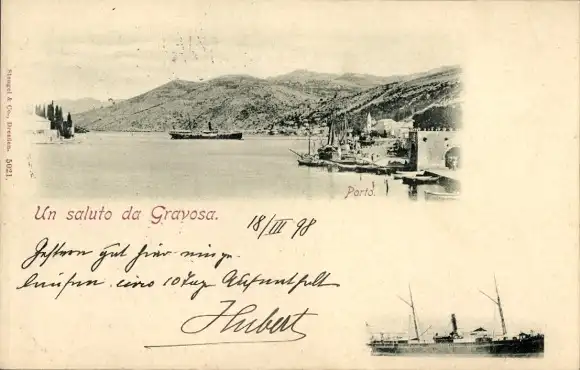 Stengel & Co., Dresden. 5021.
Porto.
Un saluto da Gravosa.
18/III 98
Gestern gut hier einge-
laufen. circa 10 Tag Aufenthalt
Hubert